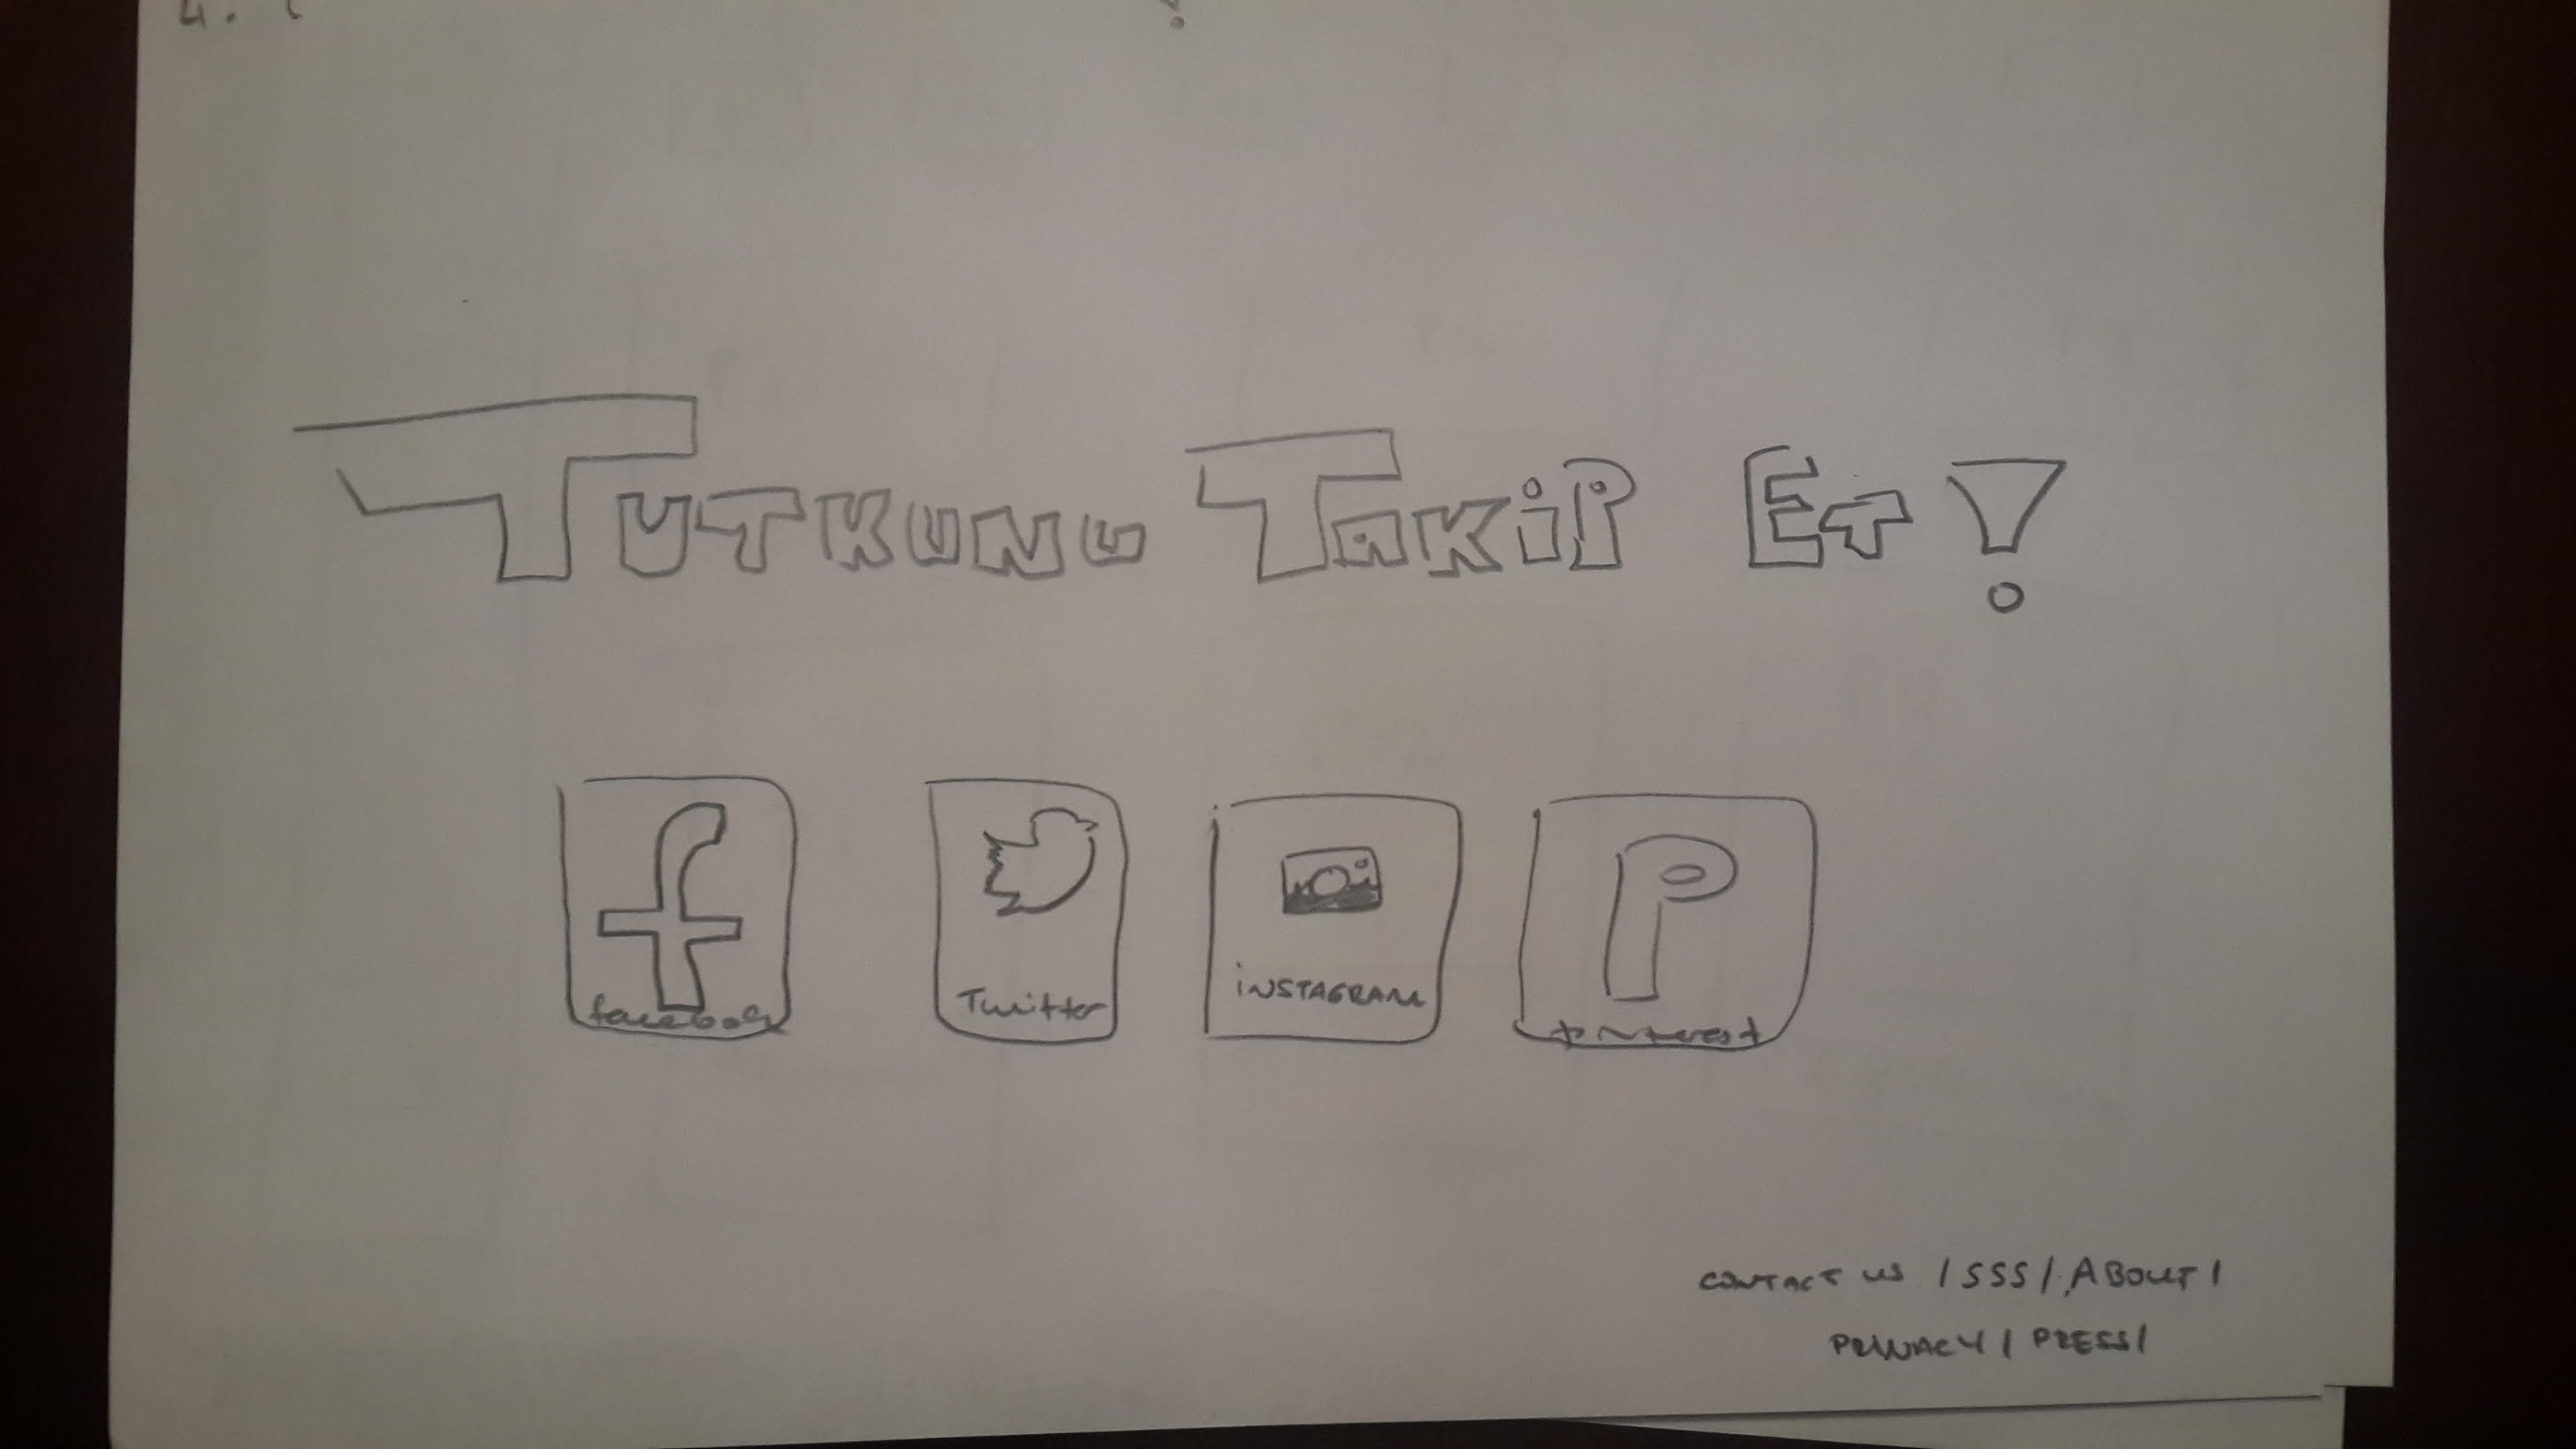 4.
TUTKUNU TAKiP ET!
f
P
facebook
Twitter
iNSTAGRAM
pinterest
CONTACT US / SSS / ABOUT /
PRIVACY / PRESS /